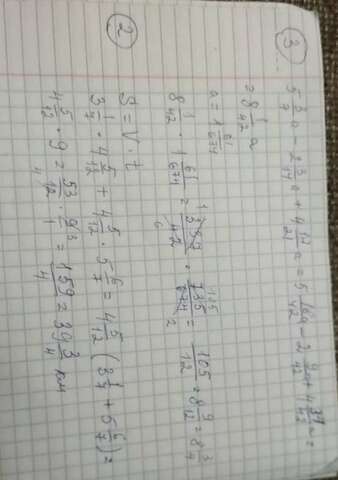 ③
5 3/7 a - 2 3/14 a + 4 17/21 a = 5 18/42 a - 2 9/42 a + 4 34/42 a =
= 8 1/42 a
a = 1 61/674
8 1/42 · 1 61/674 = 337/42 · 735/674 = 105/12 = 8 9/12 = 8 3/4
②
S = V · t
3 1/7 · 4 5/12 + 4 5/12 · 5 6/7 = 4 5/12 (3 1/7 + 5 6/7) =
4 5/12 · 9 = 53/12 · 9/1 = 159/4 = 39 3/4 км